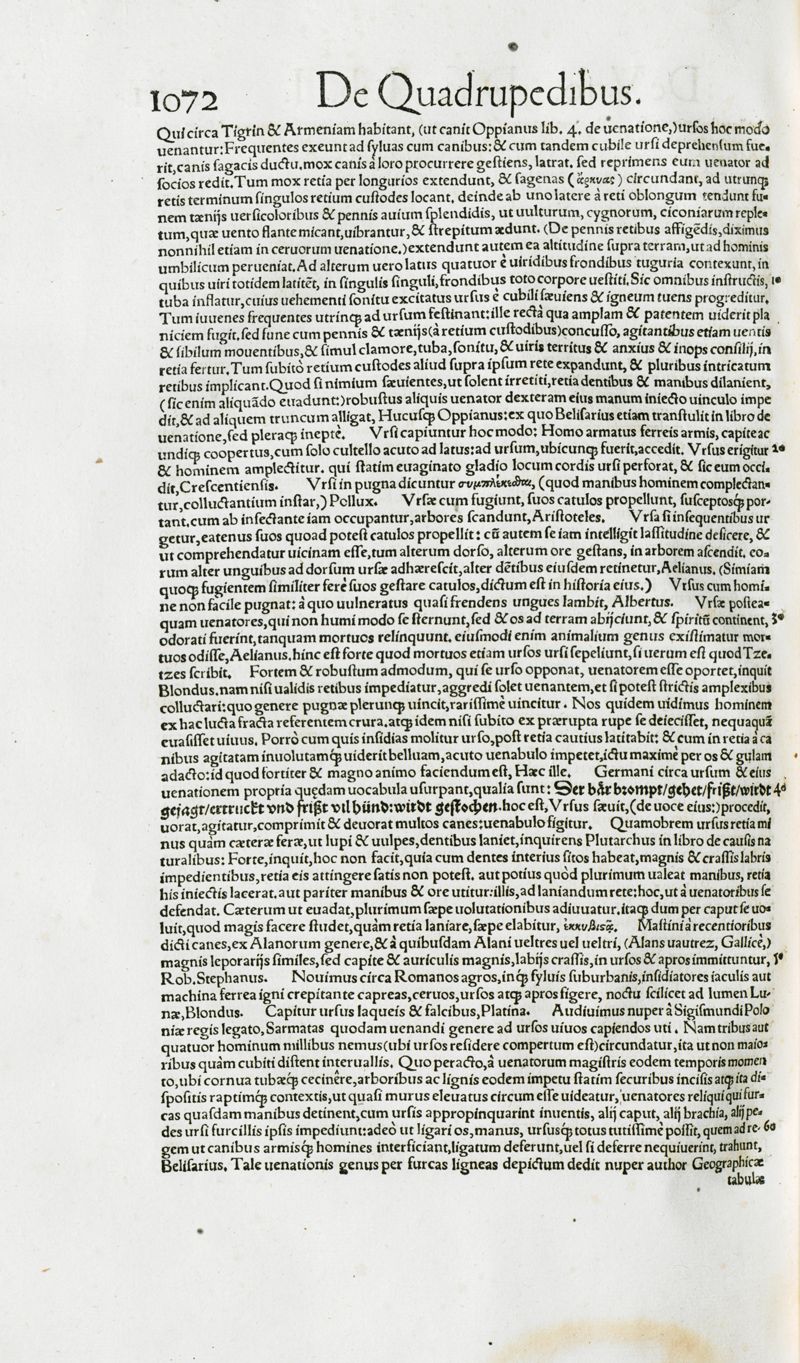 1072 De Quadrupedibus.
Qui circa Tigrin & Armeniam habitant, (ut canit Oppianus lib. 4. de uenatione,) ursos hoc modo
uenantur: Frequentes exeunt ad syluas cum canibus: & cum tandem cubile ursi deprehensum fue-
rit, canis sagacis ductu. mox canis à loro procurrere gestiens, latrat. sed reprimens eum uenator ad
socios redit. Tum mox retia per longurios extendunt, & sagenas (ἄρκυας) circundant, ad utrunq;
retis terminum singulos retium custodes locant. deinde ab uno latere à reti oblongum tendunt fu-
nem tænijs uersicoloribus & pennis auium splendidis, ut uulturum, cygnorum, ciconiarum reple-
tum, quæ uento flante micant, uibrantur, & strepitum ædunt. (De pennis retibus affigēdis, diximus
nonnihil etiam in ceruorum uenatione.) extendunt autem ea altitudine supra terram, ut ad hominis
umbilicum perueniat. Ad alterum uero latus quatuor è uiridibus frondibus tuguria contexunt, in
quibus uiri totidem latitēt, in singulis singuli, frondibus toto corpore uestiti. Sic omnibus instructis, 10
tuba inflatur, cuius uehementi sonitu excitatus ursus è cubili sæuiens & igneum tuens progreditur.
Tum iuuenes frequentes utrinq; ad ursum festinant: ille rectà qua amplam & patentem uiderit pla
niciem fugit, sed fune cum pennis & tænijs (à retium custodibus) concusso, agitantibus etiam uentis
& sibilum mouentibus, & simul clamore, tuba, sonitu, & uiris territus & anxius & inops consilij, in
retia fertur. Tum subitò retium custodes aliud supra ipsum rete expandunt, & pluribus intricatum
retibus implicant. Quod si nimium sæuientes, ut solent irretiti, retia dentibus & manibus dilanient,
(sic enim aliquādo euadunt:) robustus aliquis uenator dexteram eius manum iniecto uinculo impe
dit, & ad aliquem truncum alligat, Hucusq; Oppianus: ex quo Belisarius etiam transtulit in libro de
uenatione, sed pleraq; ineptè. Vrsi capiuntur hoc modo: Homo armatus ferreis armis, capite ac
undiq; coopertus, cum solo cultello acuto ad latus: ad ursum, ubicunq; fuerit, accedit. Vrsus erigitur 20
& hominem amplectitur. qui statim euaginato gladio locum cordis ursi perforat, & sic eum occi-
dit, Crescentiensis. Vrsi in pugna dicuntur (quod manibus hominem complectan-
tur, colluctantium instar,) Pollux. Vrsæ cum fugiunt, suos catulos propellunt, susceptosq; por-
tant. cum ab insectante iam occupantur, arbores scandunt, Aristoteles. Vrsa si insequentibus ur
getur, eatenus suos quoad potest catulos propellit: cū autem se iam intelligit lassitudine deficere, &
ut comprehendatur uicinam esse, tum alterum dorso, alterum ore gestans, in arborem ascendit. eo-
rum alter unguibus ad dorsum ursæ adhærescit, alter dētibus eiusdem retinetur, Aelianus. (Simiam
quoq; fugientem similiter ferè suos gestare catulos, dictum est in historia eius.) Vrsus cum homi-
ne non facile pugnat: à quo uulneratus quasi frendens ungues lambit, Albertus. Vrsæ postea-
quam uenatores, qui non humi modo se sternunt, sed & os ad terram abijciunt, & spiritū continent, 30
odorati fuerint, tanquam mortuos relinquunt. eiusmodi enim animalium genus existimatur mor-
tuos odisse, Aelianus. hinc est forte quod mortuos etiam ursos ursi sepeliunt, si uerum est quod Tze-
tzes scribit. Fortem & robustum admodum, qui se urso opponat, uenatorem esse oportet, inquit
Blondus. nam nisi ualidis retibus impediatur, aggredi solet uenantem, et si potest strictis amplexibus
colluctari: quo genere pugnæ plerunq; uincit, rarissimè uincitur. Nos quidem uidimus hominem
ex hac lucta fracta referentem crura. atq; idem nisi subito ex prærupta rupe se deiecisset, nequaquā
euasisset uiuus. Porrò cum quis insidias molitur urso, post retia cautius latitabit: & cum in retia à ca
nibus agitatam inuolutamq; uiderit belluam, acuto uenabulo impetet, ictu maximè per os & gulam
adacto: id quod fortiter & magno animo faciendum est, Hæc ille. Germani circa ursum & eius
uenationem propria quędam uocabula usurpant, qualia sunt: Der bår brompt/gehet/frißt/wirdt 40
gejagt/ertruckt vnd frißt vil hünd: wirdt gestochen. hoc est, Vrsus sæuit, (de uoce eius:) procedit,
uorat, agitatur, comprimit & deuorat multos canes: uenabulo figitur. Quamobrem ursus retia mi
nus quàm cæteræ feræ, ut lupi & uulpes, dentibus laniet, inquirens Plutarchus in libro de causis na
turalibus: Forte, inquit, hoc non facit, quia cum dentes interius sitos habeat, magnis & crassis labris
impedientibus, retia eis attingere satis non potest. aut potius quòd plurimum ualeat manibus, retia
his iniectis lacerat. aut pariter manibus & ore utitur: illis, ad laniandum rete; hoc, ut à uenatoribus se
defendat. Cæterum ut euadat, plurimum sæpe uolutationibus adiuuatur. itaq; dum per caput se uo-
luit, quod magis facere studet, quàm retia laniare, sæpe elabitur, ἐκκυβιστᾷ. Mastini à recentioribus
dicti canes, ex Alanorum genere, & à quibusdam Alani ueltres uel ueltri, (Alans uautrez, Gallicè,)
magnis leporarijs similes, sed capite & auriculis magnis, labijs crassis, in ursos & apros immittuntur, 50
Rob. Stephanus. Nouimus circa Romanos agros, inq; syluis suburbanis, insidiatores iaculis aut
machina ferrea igni crepitante capreas, ceruos, ursos atq; apros figere, noctu scilicet ad lumen Lu-
næ, Blondus. Capitur ursus laqueis & falcibus, Platina. Audiuimus nuper à Sigismundi Polo
niæ regis legato, Sarmatas quodam uenandi genere ad ursos uiuos capiendos uti. Nam tribus aut
quatuor hominum millibus nemus (ubi ursos residere compertum est) circundatur, ita ut non maio-
ribus quàm cubiti distent interuallis. Quo peracto, à uenatorum magistris eodem temporis momen
to, ubi cornua tubæq; cecinêre, arboribus ac lignis eodem impetu statim securibus incisis atq; ita di-
spositis raptimq; contextis, ut quasi murus eleuatus circum esse uideatur, uenatores reliqui qui fur-
cas quasdam manibus detinent, cum ursis appropinquarint inuentis, alij caput, alij brachia, alij pe-
des ursi furcillis ipsis impediunt: adeò ut ligari os, manus, ursusq; totus tutissimè possit, quem ad re- 60
gem ut canibus armisq; homines interficiant, ligatum deferunt, uel si deferre nequiuerint, trahunt,
Belisarius. Tale uenationis genus per furcas ligneas depictum dedit nuper author Geographicæ
tabulæ